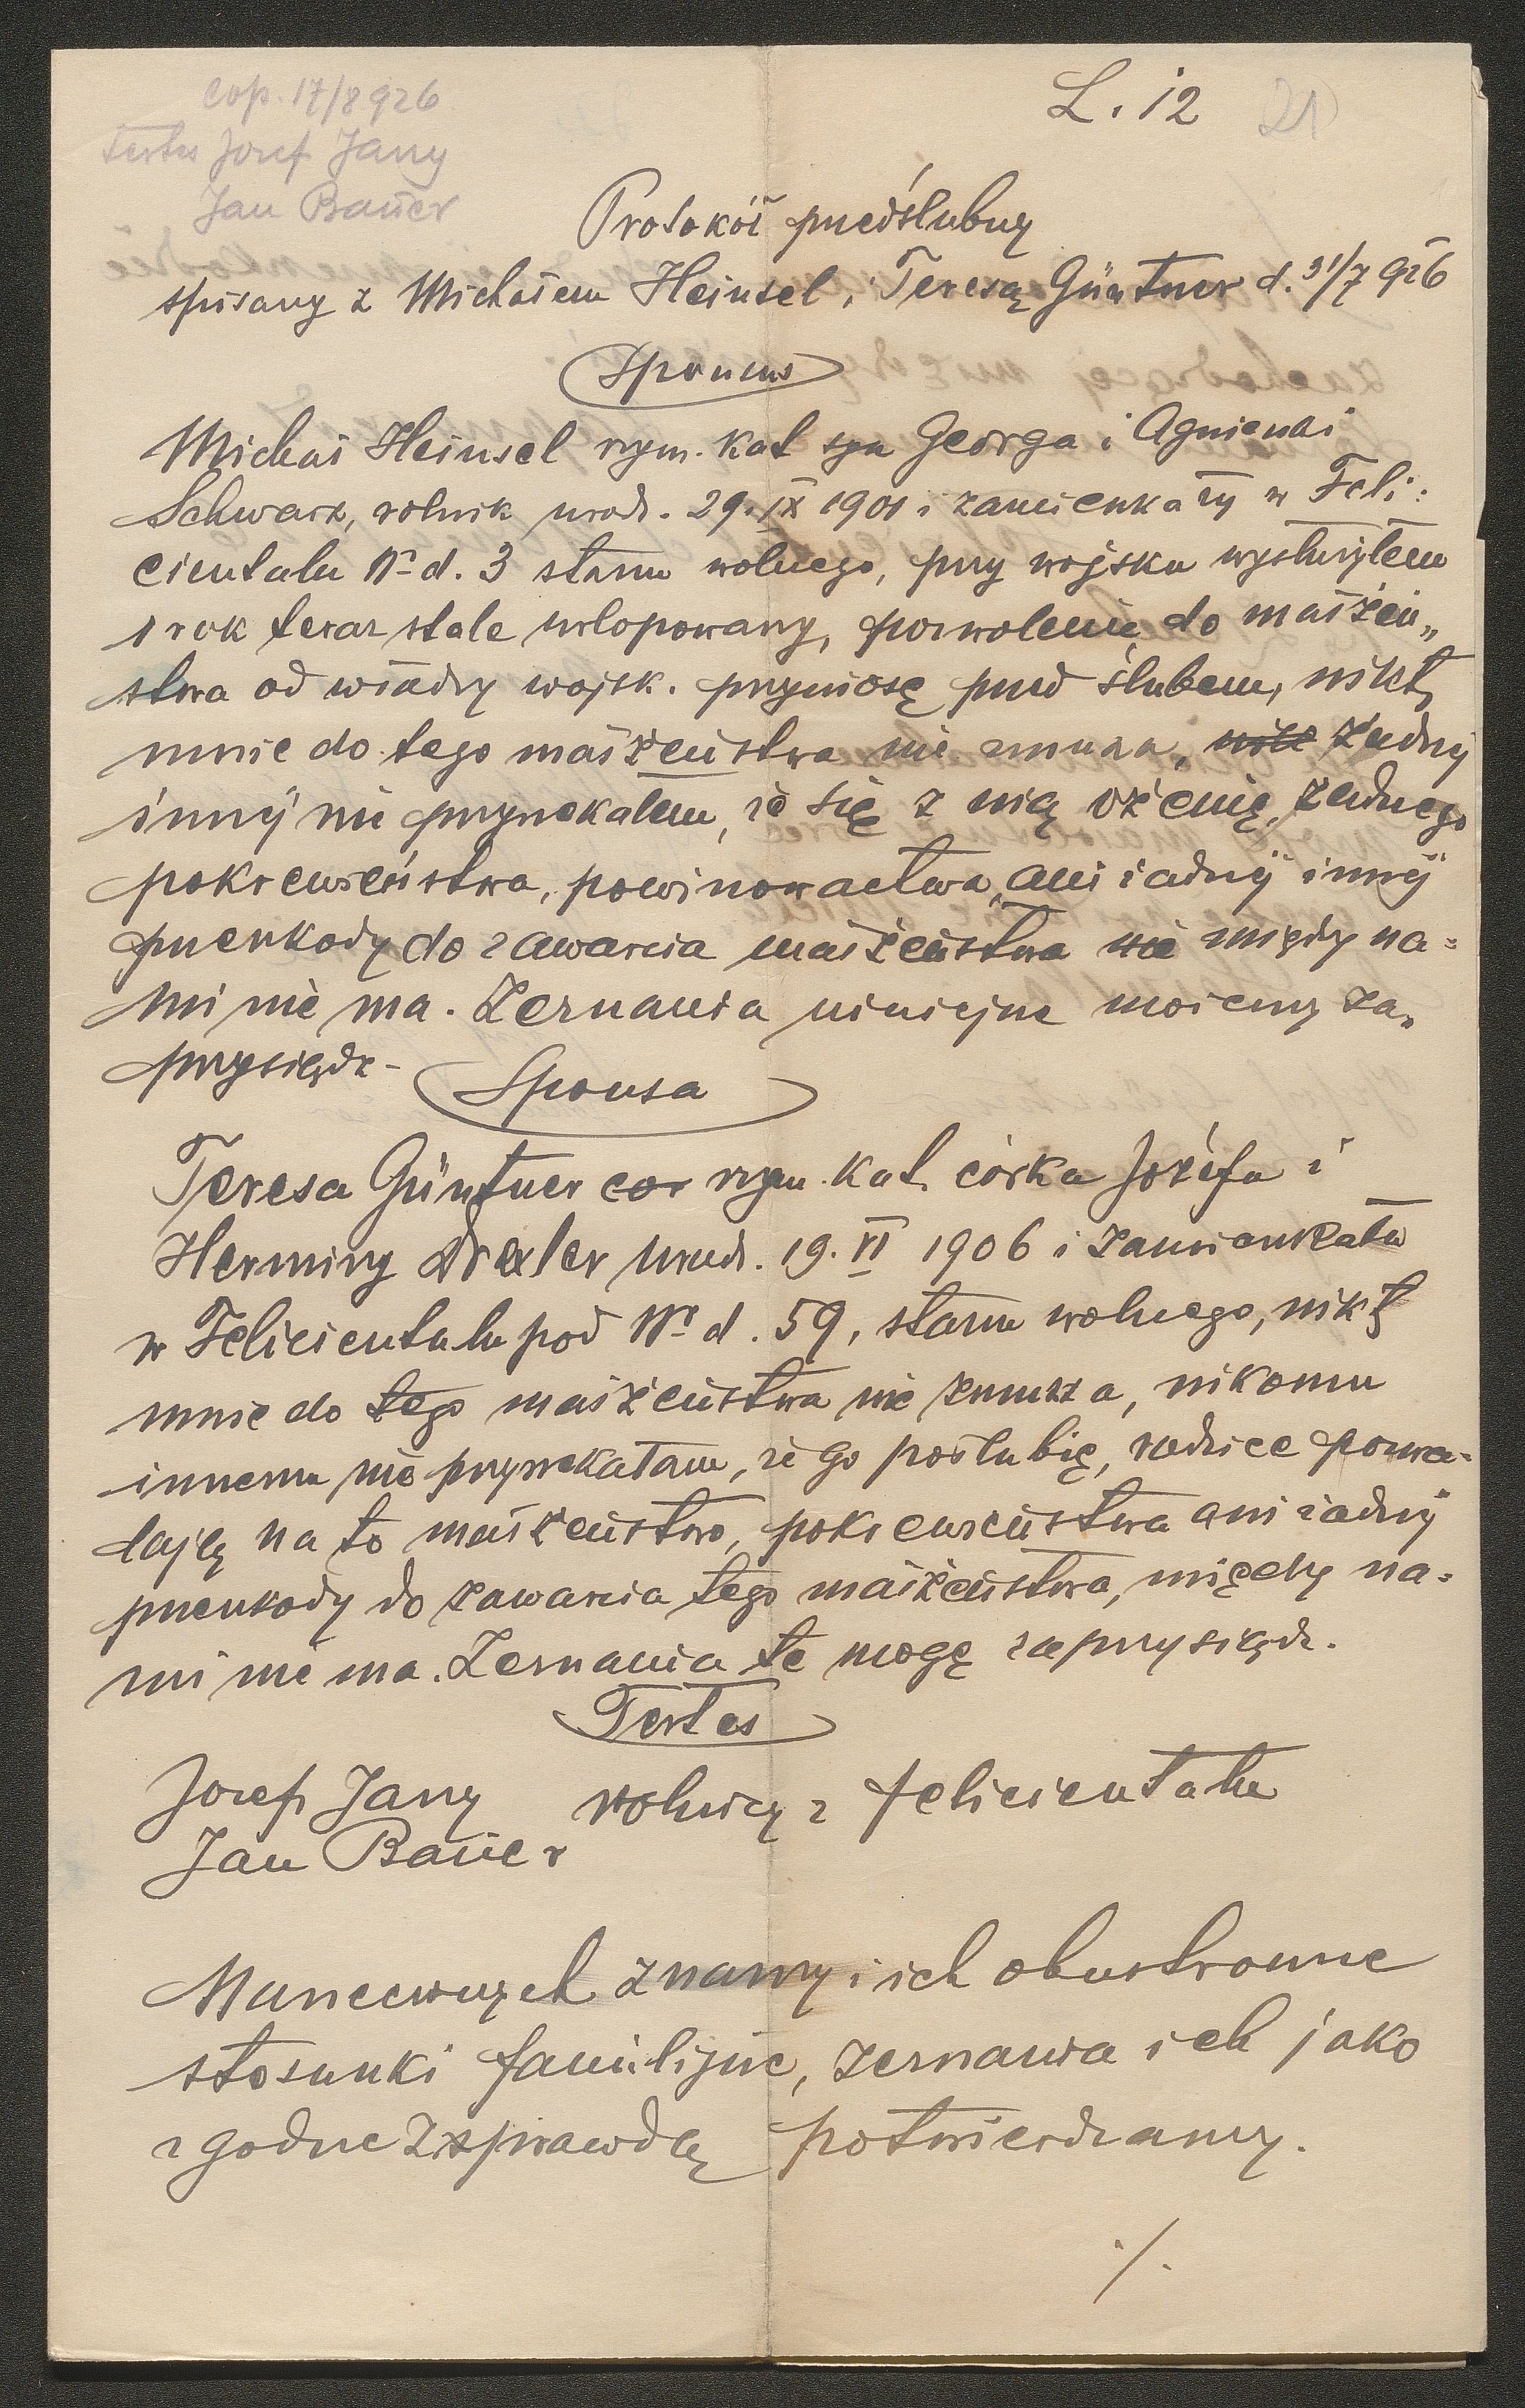 Cop. 17/8 926
testes Josef Jany
Jan Bauer
L. 12 21
Protokół przedślubny
spisany z Michałem Heinsel i Teresą Güntner d. 31/7 926
Sponsus
Michał Heinsel rzym. kat syn Georga i Agnieszki
Schwarz, rolnik urodz. 29. IX 1901 i zamieszkały w Feli:
cientalu Nr d. 3 stanu wolnego, przy wojsku wysłużyłem
1 rok teraz stale urlopowany, pozwolenie do małżeń„
stwa od władzy wojsk. przyniosę przed ślubem, nikt
mnie do tego małżeństwa nie zmusza, żadnej
innej nie przyrzekałem, że się z nią ożenię, żadnego
pokrewieństwa, powinowactwa, ani żadnej innej
przeszkody do zawarcia małżeństwa nie między na=
mi nie ma. Zeznania niniejsze możemy za„
przysiądz-
Sponsa
Teresa Güntner cor rzym. kat. córka Józefa i
Herminy Drexler urodz. 19. VI 1906 i zamieszkała
w Felicientalu pod Nr d. 59, stanu wolnego, nikt
mnie do tego małżeństwa nie zmusza, nikomu
innemu nie przyrzekałam, że go poślubię, rodzice pozwa=
lają na to małżeństwo, pokrewieństwa ani żadnej
przeszkody do zawarcia tego małżeństwa, między na=
mi nie ma. Zeznania te mogę zaprzysiądz.
Testes
Josef Jany rolnicy z Felicientalu
Jan Bauer
Narzeczonych znamy i ich obustronne
stosunki familijne, zeznania ich jako
zgodne z prawdą potwierdzamy.
./.